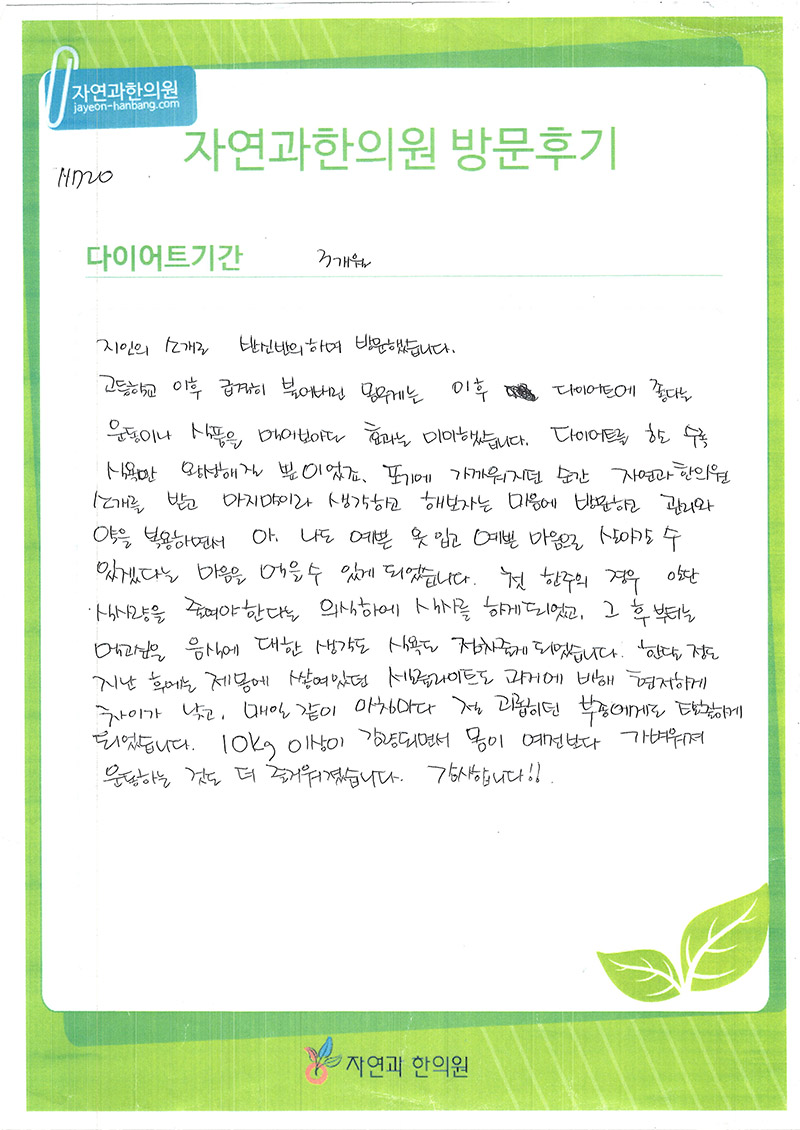 자연과한의원
jayeon-hanbang.com
자연과한의원 방문후기
다이어트기간 3개월
지인의 소개로 반신반의하며 방문했습니다.
고등학교 이후 급격히 불어버린 몸무게는 이후 다이어트에 좋다는
운동이나 식품을 먹어보아도 효과는 미미했습니다. 다이어트를 할 수록
식욕만 왕성해질 뿐이었죠. 포기에 가까워지던 순간 자연과한의원
소개를 받고 마지막이라 생각하고 해보자는 마음에 방문하고 관리와
약을 복용하면서 아. 나도 예쁜 옷 입고 예쁜 마음으로 살아갈 수
있겠다는 마음을 먹을 수 있게 되었습니다. 첫 한주의 경우 일단
식사량을 줄여야한다는 의식하에 식사를 하게되었고, 그 후부터는
먹고싶을 음식에 대한 생각도 식욕도 점차줄게되었습니다. 한달 정도
지난 후에는 제몸에 쌓여있던 셀룰라이트도 과거에 비해 현저하게
차이가 났고, 매일 같이 아침마다 절 괴롭히던 부종에게도 탈출하게
되었습니다. 10kg 이상이 감량되면서 몸이 예전보다 가벼워져
운동하는 것도 더 즐거워졌습니다. 감사합니다!!
자연과 한의원